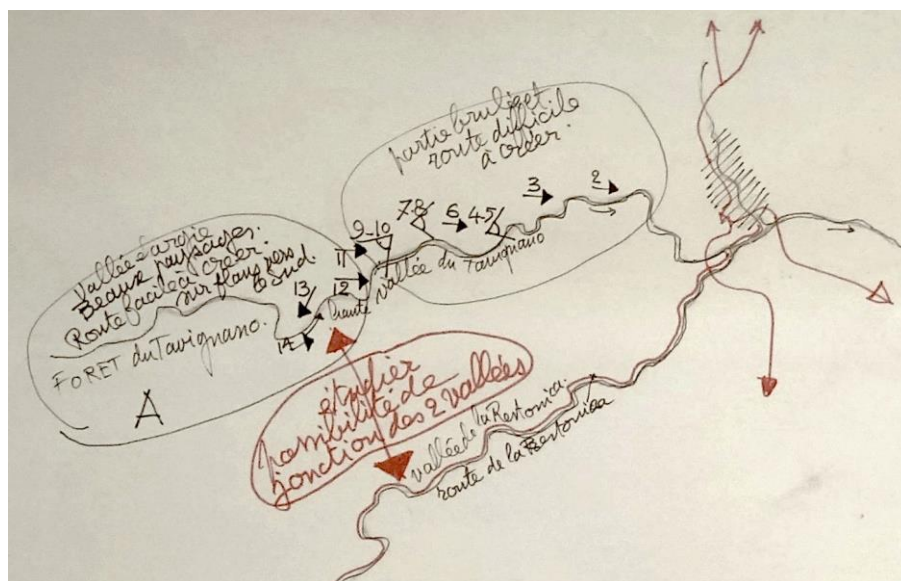 partie brulée et.
route difficile
à créer.
7-8
6
4-5
3
2
9-10
11
12
13
14
Vallée élargie
Beaux paysages.
Route facile à créer.
sur flanc vers
le Sud.
haute vallée du Tavignano
FORET du Tavignano.
A
étudier
possibilité de
jonction des 2 vallées
vallée de la Restonica.
route de la Restonica